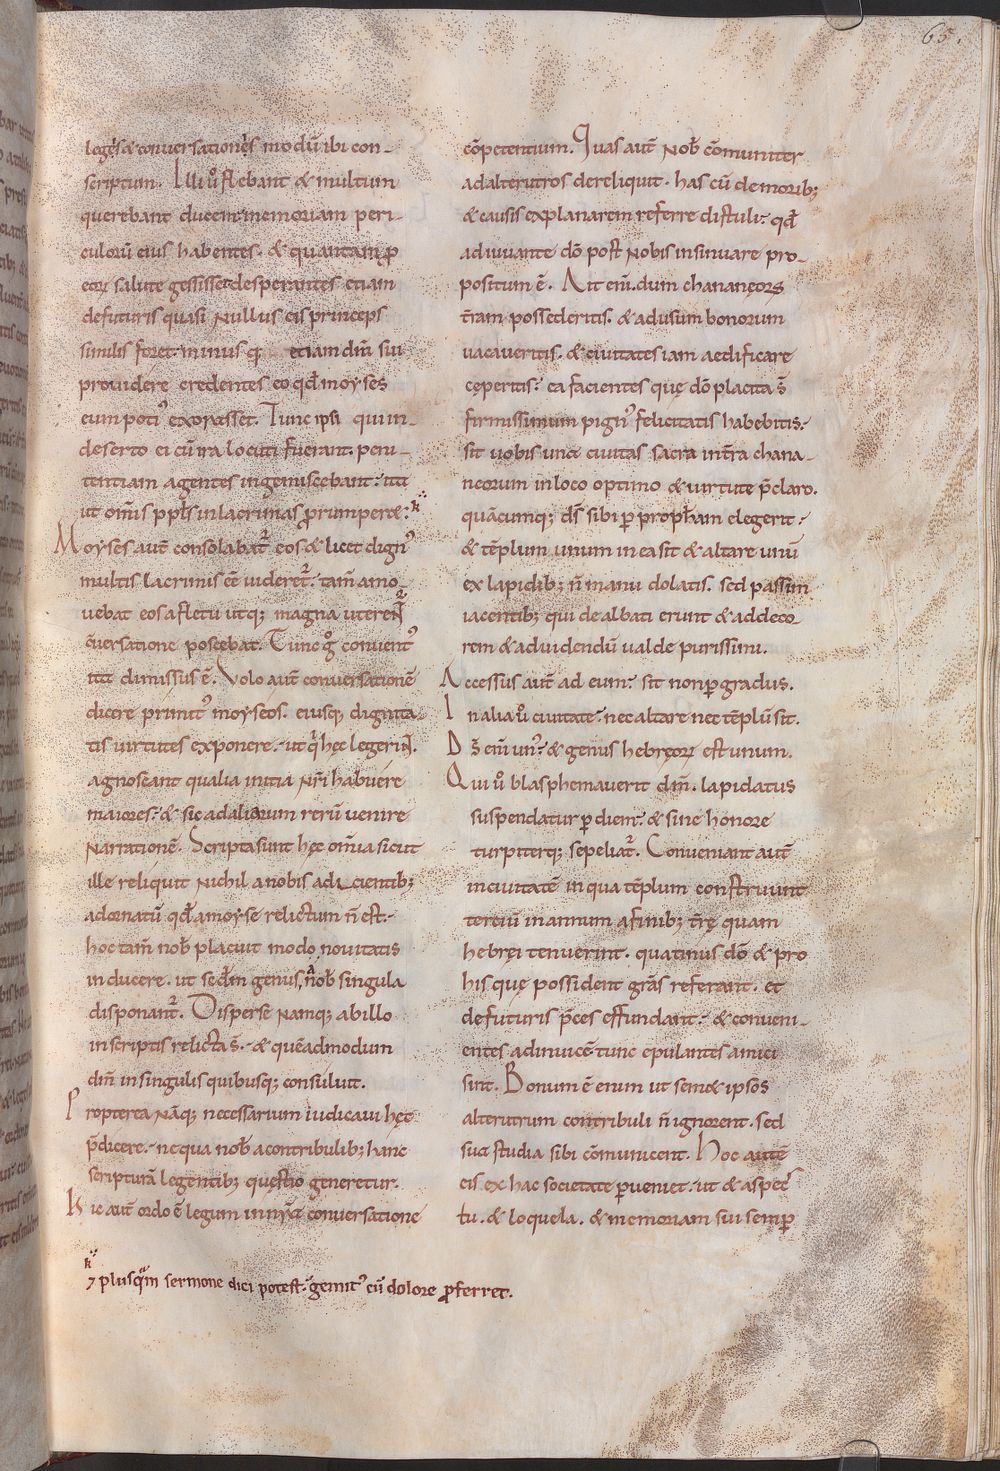 65.
leges & conversationes modū ibi con-
scriptum. Illi ů flebant & multum
querebant ducem: memoriam peri-
culorū eius habentes. & quantam ꝓ
eoꝝ salute gessisset desperantes etiam
defuturis quasi nullus eis princeps
similis foret. minus q; etiam dm̄ sui
providere credentes eo qđ moyses
eum poti᾽ exorasset. Tunc ipsi qui in-
deserto ei cū ira locuti fuerant. peni-
tentiam agentes ingemiscebant: ita
ut om̄is ppl̄s in lacrimas ꝓrumperet:
Moyses aut̄ consolabat᷑ eos & licet dign᾽
multis lacrimis eē videret᷑. tam̄ amo-
vebat eos afletu utq; magna uteren᷑
c̄versatione poscebat. Tunc ḡ convent᾽
ita dimissus ē. Volo aut̄ conversationē
dicere primit᾽ moyseos. eiusq; dignita-
tis virtutes exponere. ut q̇ hęc legerin᷑.
agnoscant qualia initia nr̄i habuere
maiores. & sic ad aliorum rerū venire
narrationē. Scripta sunt hęc om̄ia sicut
ille reliquit nichil a nobis adicientib;
ad ornatū qđ a moyse relictum n̄ est.
hoc tam̄ nob̄ placuit modo novitatis
inducere. ut sed̄m genus a nob̄ singula
disponant᷑. Disperse namq; ab illo
inscriptis relicta s̄. & quēadmodum
dm̄ in singulis quibusq; consuluit.
Propterea nāq; necessarium iudicavi hęc
p̄dicere. nequa nob̄ a contribulib; hanc
scripturā legentib; questio generetur.
Hic aut̄ ordo ē legum in nr̄a conversatione
⁊ plusquā sermone dici potest. gemit᾽ cū dolore ꝓferret.
cōpetentium. Quas aut̄ nob̄ cōmuniter
ad alterutros dereliquit. has cū demorib;
& causis explanarem referre distuli. qđ
adiuvante dō post nobis insinuare pro-
positum ē. Ait em̄. dum chananęoꝝ
t̄ram possederitis. & adusum bonorum
vacaveritis. & civitates iam aedificare
cęperitis: ea facientes quę dō placita s̄
firmissimum pign᾽ felicitatis habebitis:
sit vobis una civitas sacra int̄ra chana-
neorum in loco optimo & virtute p̄claro.
quācumq; ds̄ sibi ꝑ proph̄am elegerit:
& tēplum unum in ea sit & altare unū
ex lapidib; n̄ manu dolatis. sed passim
iacentib; qui dealbati erunt & addeco-
rem & advidendū valde purissimi.
Accessus aut̄ ad eum: sit non ꝑ gradus.
In alia ů civitate: nec altare nec tēplū sit.
Ds̄ em̄ un᾽: & genus hebręoꝝ est unum.
Qui ů blasphemaverit dm̄. lapidatus
suspendatur ꝑ diem: & sine honore
turpiterq; sepeliat᷑. Conveniant aut̄
in civitatē in qua tēplum construunt
terciū in annum a finib; t̄rę quam
hebręi tenuerint. quatinus dō & pro
his quę possident grās referant. et
de futuris p̄ces effundant. & conveni-
entes adinvicē tunc epulantes amici
sint. Bonum ē enim ut sem& ipsos
alterutrum contribuli n̄ ignorent. sed
sua studia sibi cōmunicent. Hoc autē
eis ex hac societate ꝓveniet. ut & aspec-
tu. & loquela. & memoriam sui semꝑ